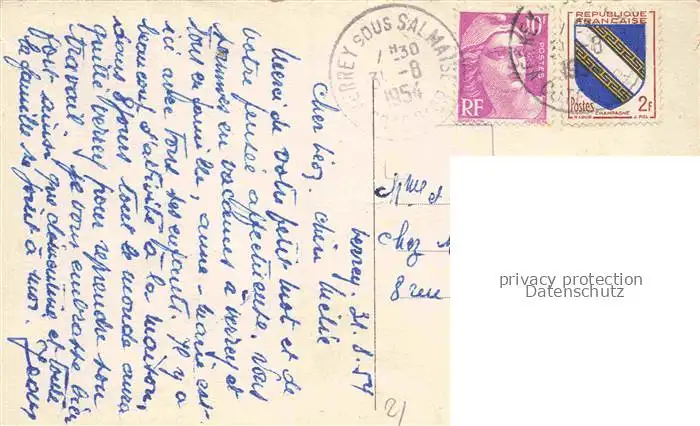 Verrey. 31.8.54
Cher Léo, chère Mélie
Merci de votre petit mot et de
votre pensée affectueuse. Nous
sommes en vacances à Verrey et
tous en famille, Anne-Marie est
ici avec tous ses enfants. Il y a
beaucoup d'activité à la maison,
dans 8 jours tout le monde aura
quitté Verrey pour reprendre son
travail. Je vous embrasse bien
fort ainsi que et toute
la famille se joint à moi. Jean
Mme et
Chez
8 rue
VERREY SOUS SALMAISE
30
31 - 8
1954
10F
POSTES
RF
RÉPUBLIQUE
FRANÇAISE
Postes
2F
CHAMPAGNE
21
privacy protection
Datenschutz